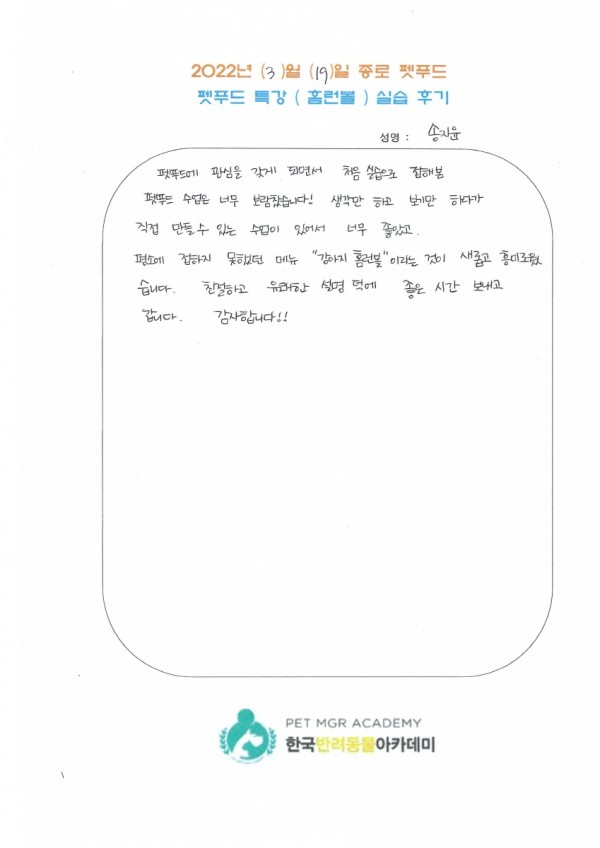 2022년 (3)월 (19)일 종로 펫푸드
펫푸드 특강 ( 홈런볼 ) 실습 후기
성명 : 송지윤
펫푸드에 관심을 갖게 되면서 처음 실습으로 접해볼
펫푸드 수업은 너무 보람찼습니다! 생각만 하고 보기만 하다가
직접 만들 수 있는 수업이 있어서 너무 좋았고.
평소에 접하지 못하였던 메뉴 "강아지 홈런볼"이라는 것이 새롭고 흥미로웠
습니다. 친절하고 유쾌한 설명 덕에 좋은 시간 보내고
갑니다. 감사합니다!!
PET MGR ACADEMY
한국반려동물아카데미